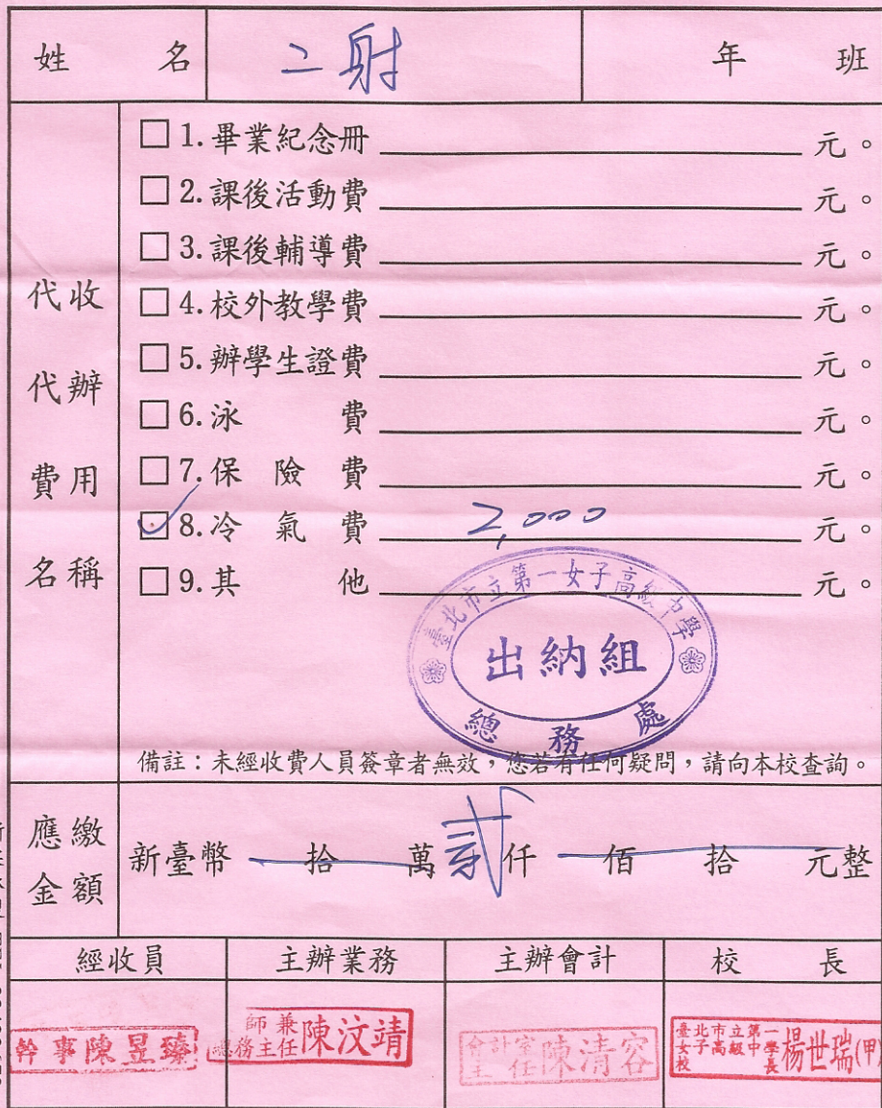 姓 名 二射 年 班
代收代辦費用名稱
□1.畢業紀念冊 元。
□2.課後活動費 元。
□3.課後輔導費 元。
□4.校外教學費 元。
□5.辦學生證費 元。
□6.泳 費 元。
□7.保 險 費 元。
☑8.冷 氣 費 2,000 元。
□9.其 他 元。
臺北市立第一女子高級中學
出納組
總務處
備註：未經收費人員簽章者無效，您若有任何疑問，請向本校查詢。
應繳金額 新臺幣 拾 萬 貳仟 佰 拾 元整
經收員 主辦業務 主辦會計 校 長
幹事陳昱臻
師兼總務主任陳汶靖
會計室主任陳清容
臺北市立第一女子高級中學校長楊世瑞(甲)